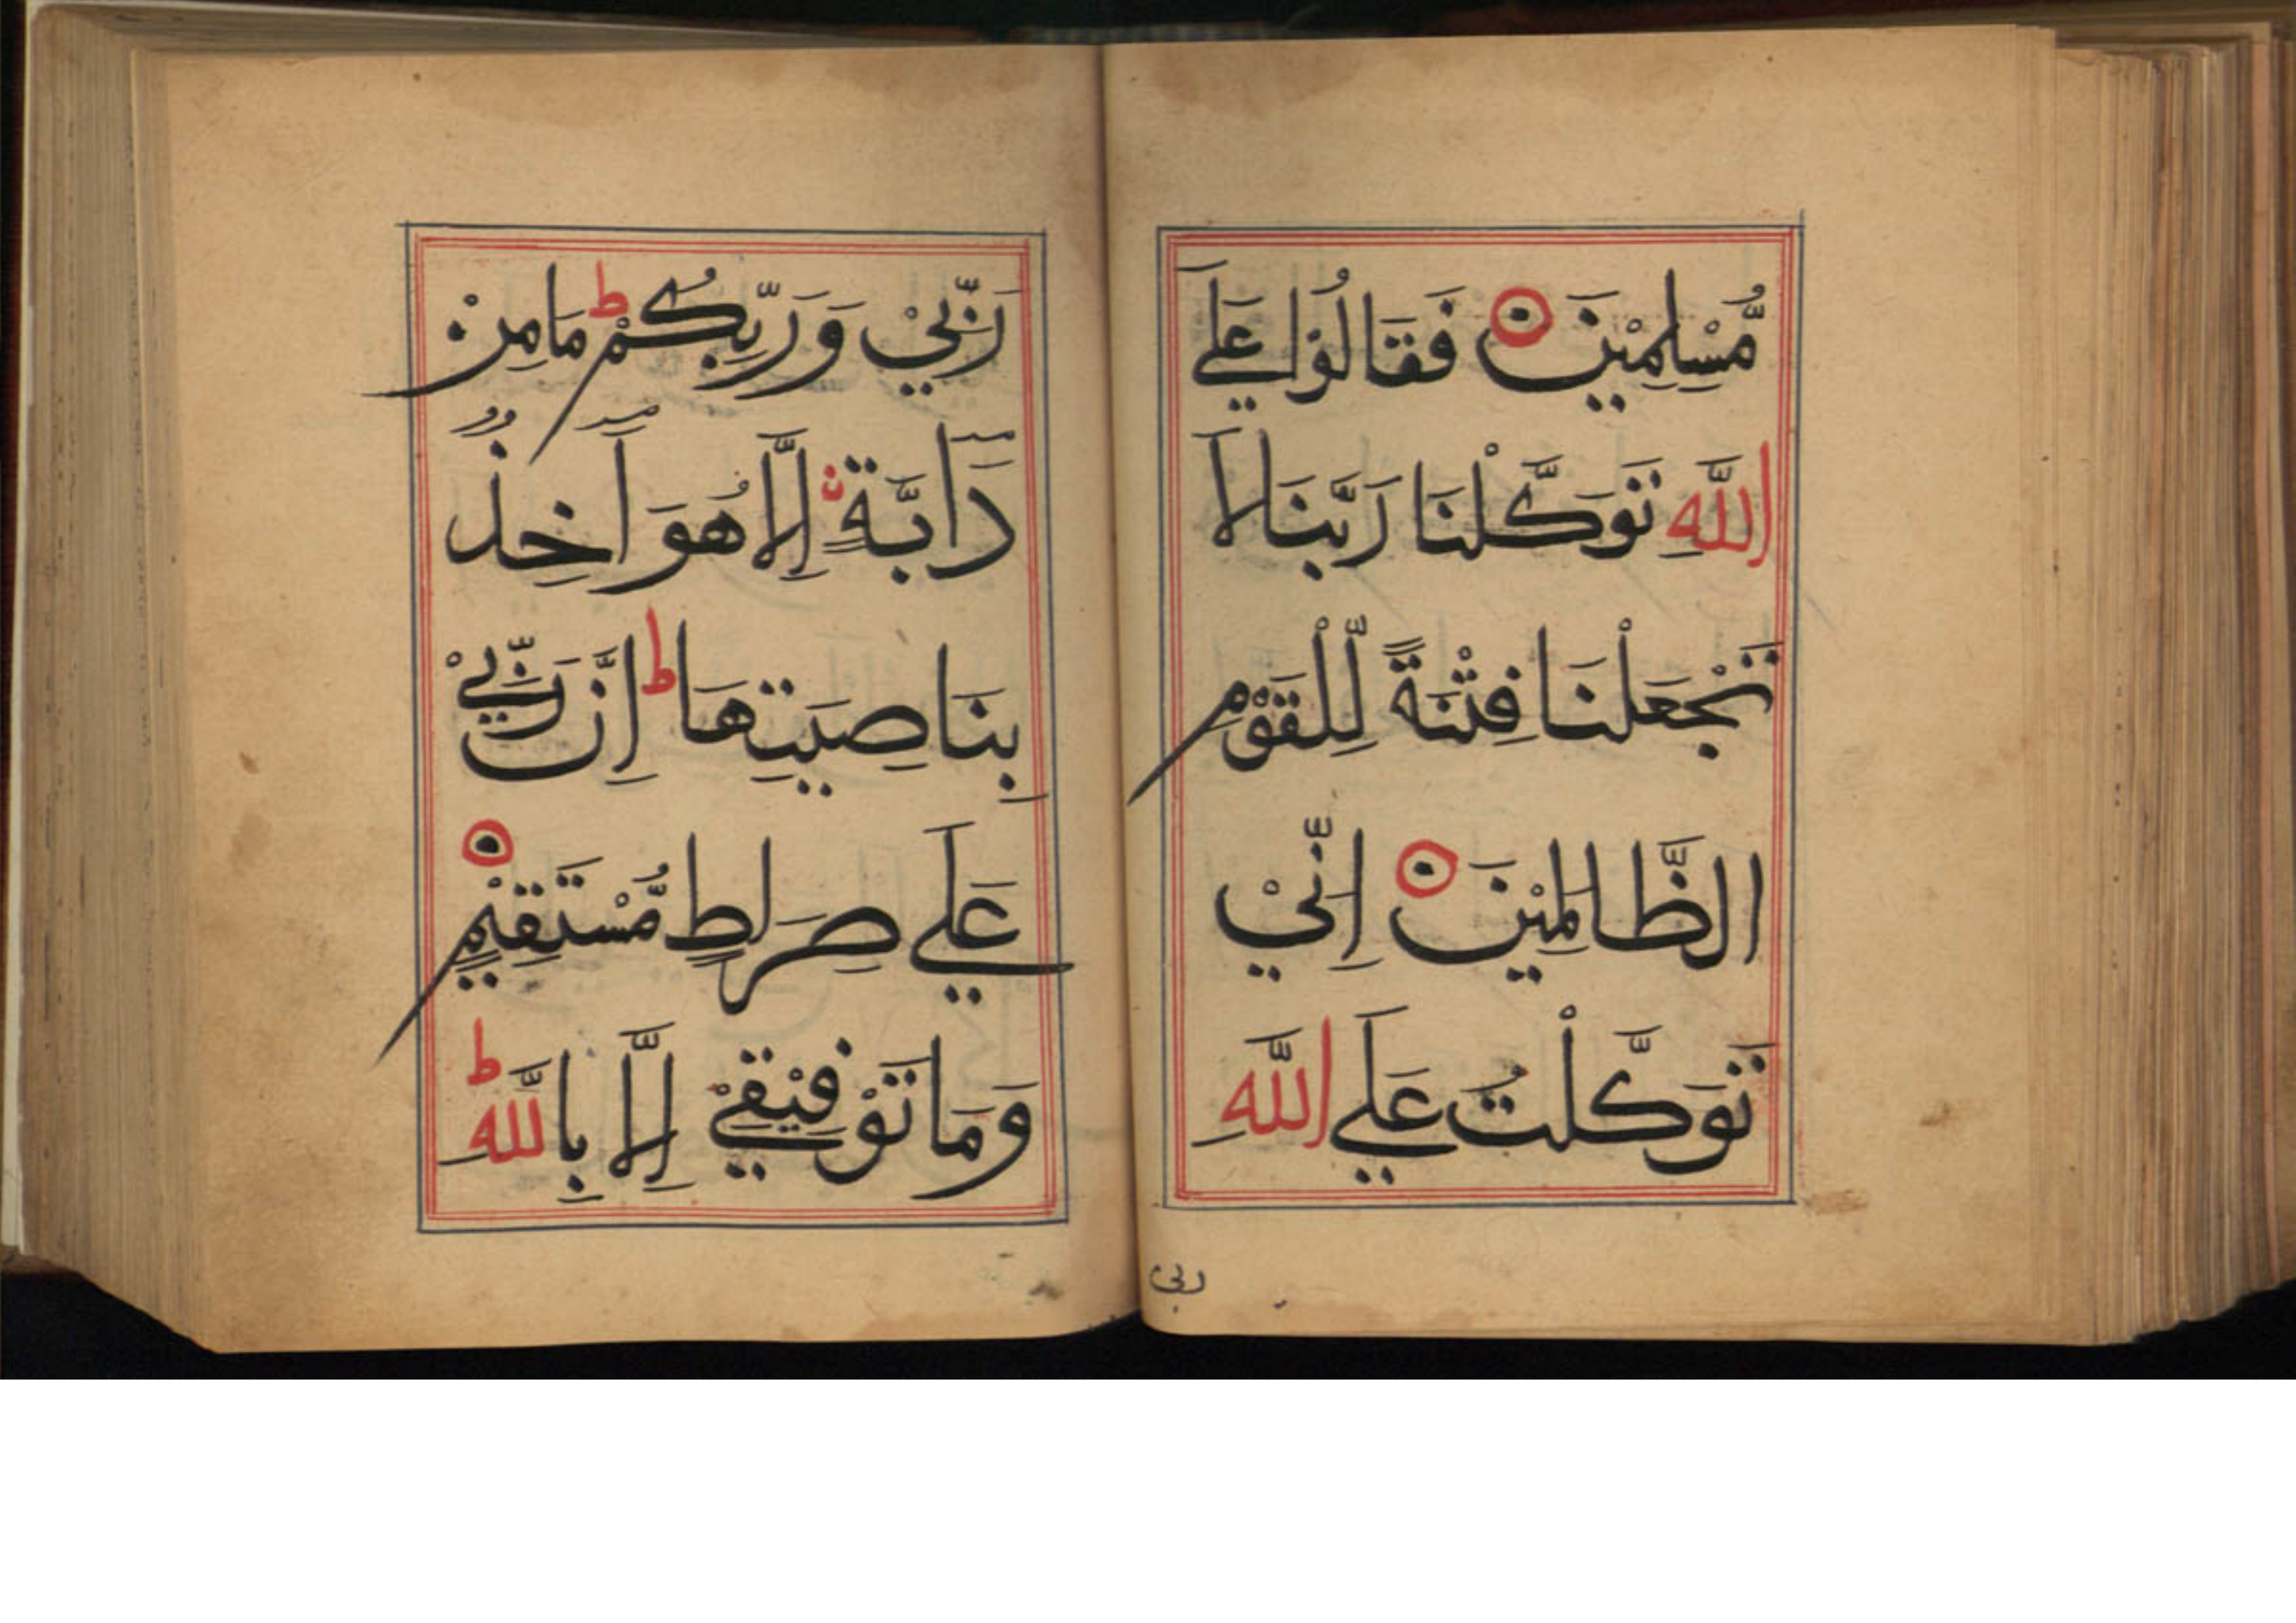 مُّسْلِمِيْنَ فَقَالُوْا عَلَي
اللَّهِ تَوَكَّلْنَا رَبَّنَا لَا
تَجْعَلْنَا فِتْنَةً لِّلْقَوْمِ
الظَّالِمِيْنَ اِنِّيْ
تَوَكَّلْتُ عَلَي اللَّهِ
ربي
رَبِّيْ وَرَبِّكُمْ ط مَا مِنْ
دَآبَّةٍ اِلَّا هُوَ آخِذٌ
بِنَاصِيَتِهَا ط اِنَّ رَبِّيْ
عَلَي صِرَاطٍ مُّسْتَقِيْمٍ
وَمَا تَوْفِيْقِيْ اِلَّا بِاللَّهِ ط